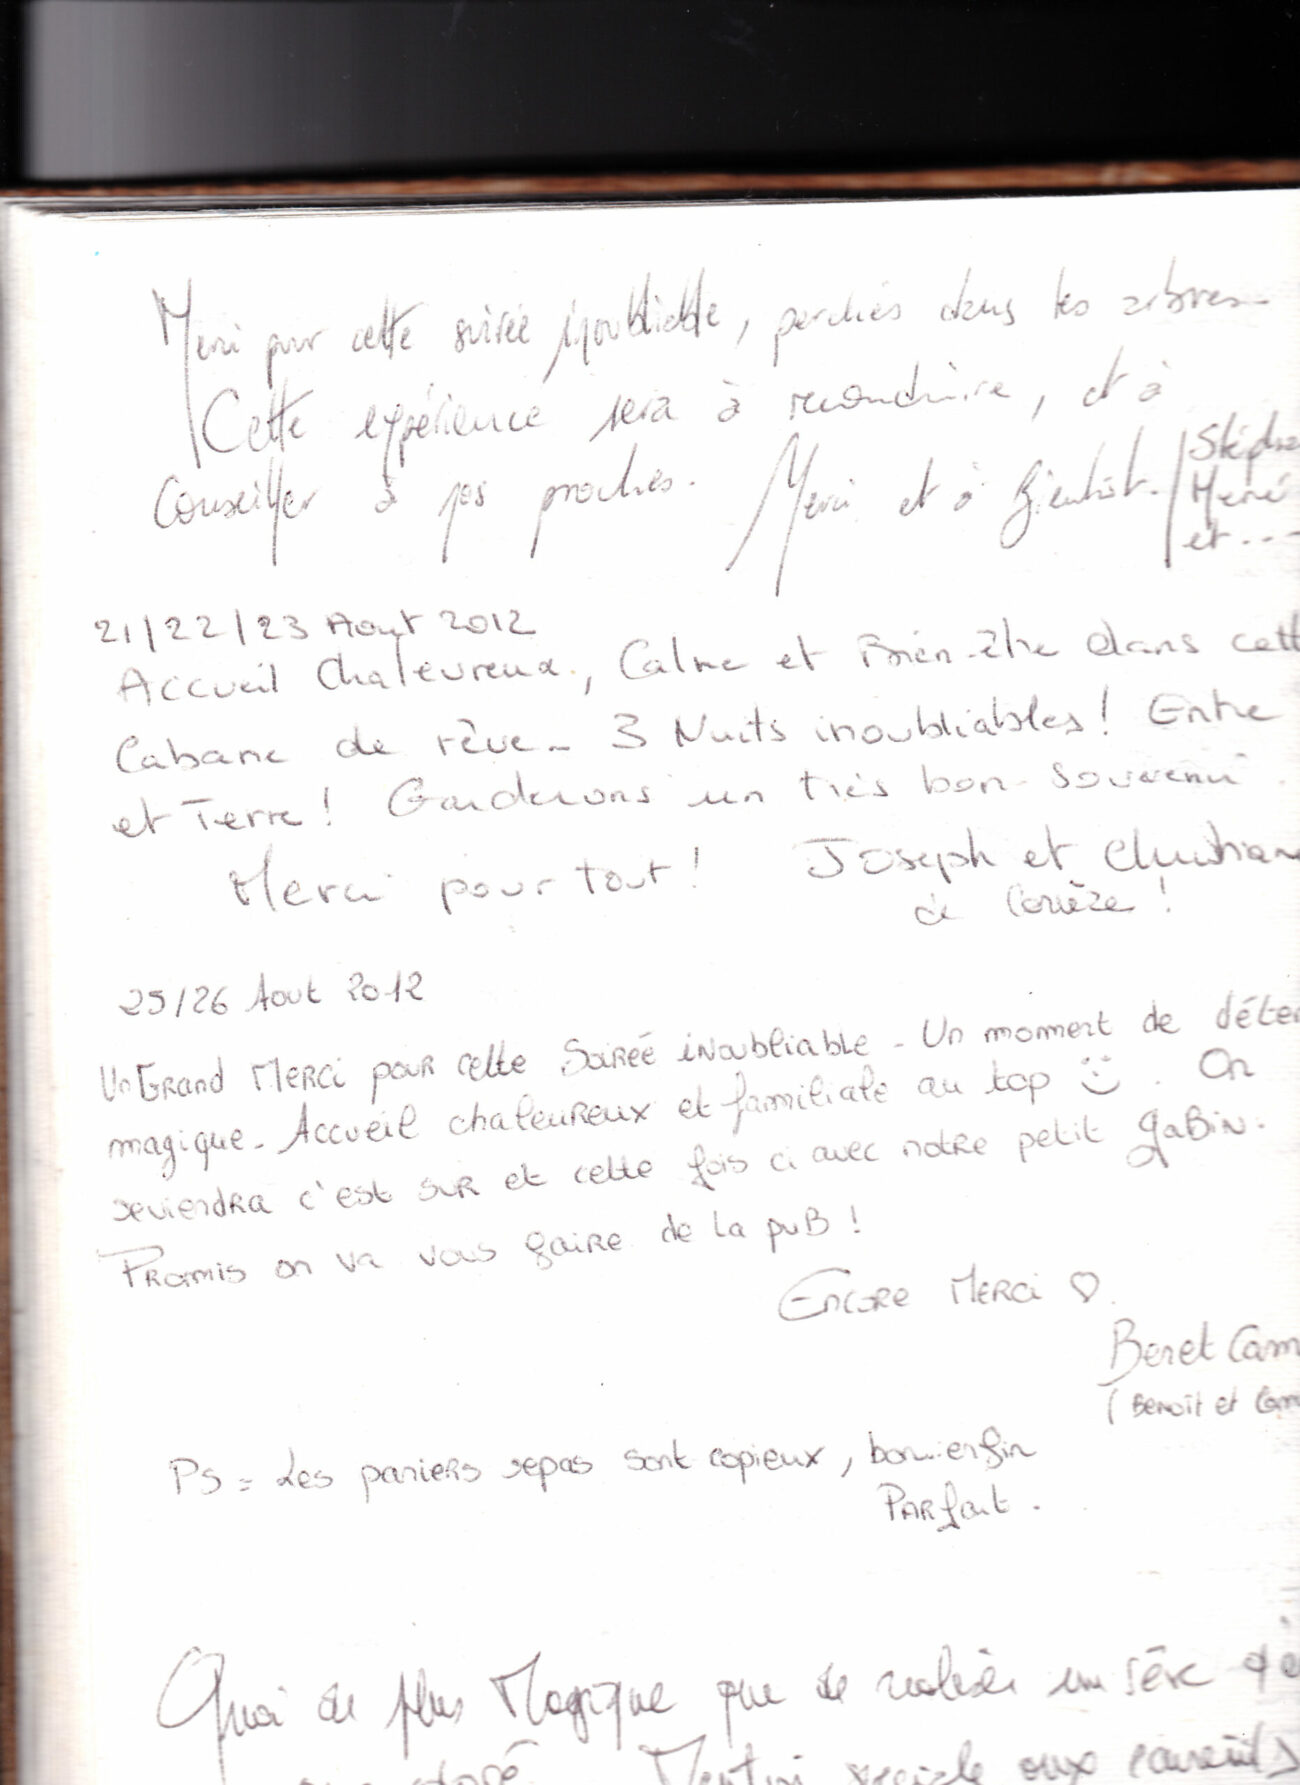 Merci pour cette soirée inoubliable, perchés dans les arbres.
Cette expérience sera à reconduire, et à
Conseiller à nos proches. Merci et à Bientôt.
Stépha
Hervé
et ...
21/22/23 Aout 2012
Accueil Chaleureux, Calme et Bien-être dans cett
Cabane de rêve - 3 Nuits inoubliables! Entre
et Terre! Garderons un très bon souvenir.
Merci pour tout! Joseph et Christiane
de Corrèze!
25/26 Aout 2012
Un Grand Merci pour cette Soirée inoubliable - Un moment de déten
magique. Accueil chaleureux et familiale au top :). On
reviendra c'est sur et cette fois ci avec notre petit gabin.
Promis on va vous faire de la pub!
Encore Merci ♡.
Benet Cam
(Benoît et Cam
PS = Les paniers repas sont copieux, bon... enfin
Parfait.
Quoi de plus Magique que de réaliser un rêve d'e
Mention spéciale aux